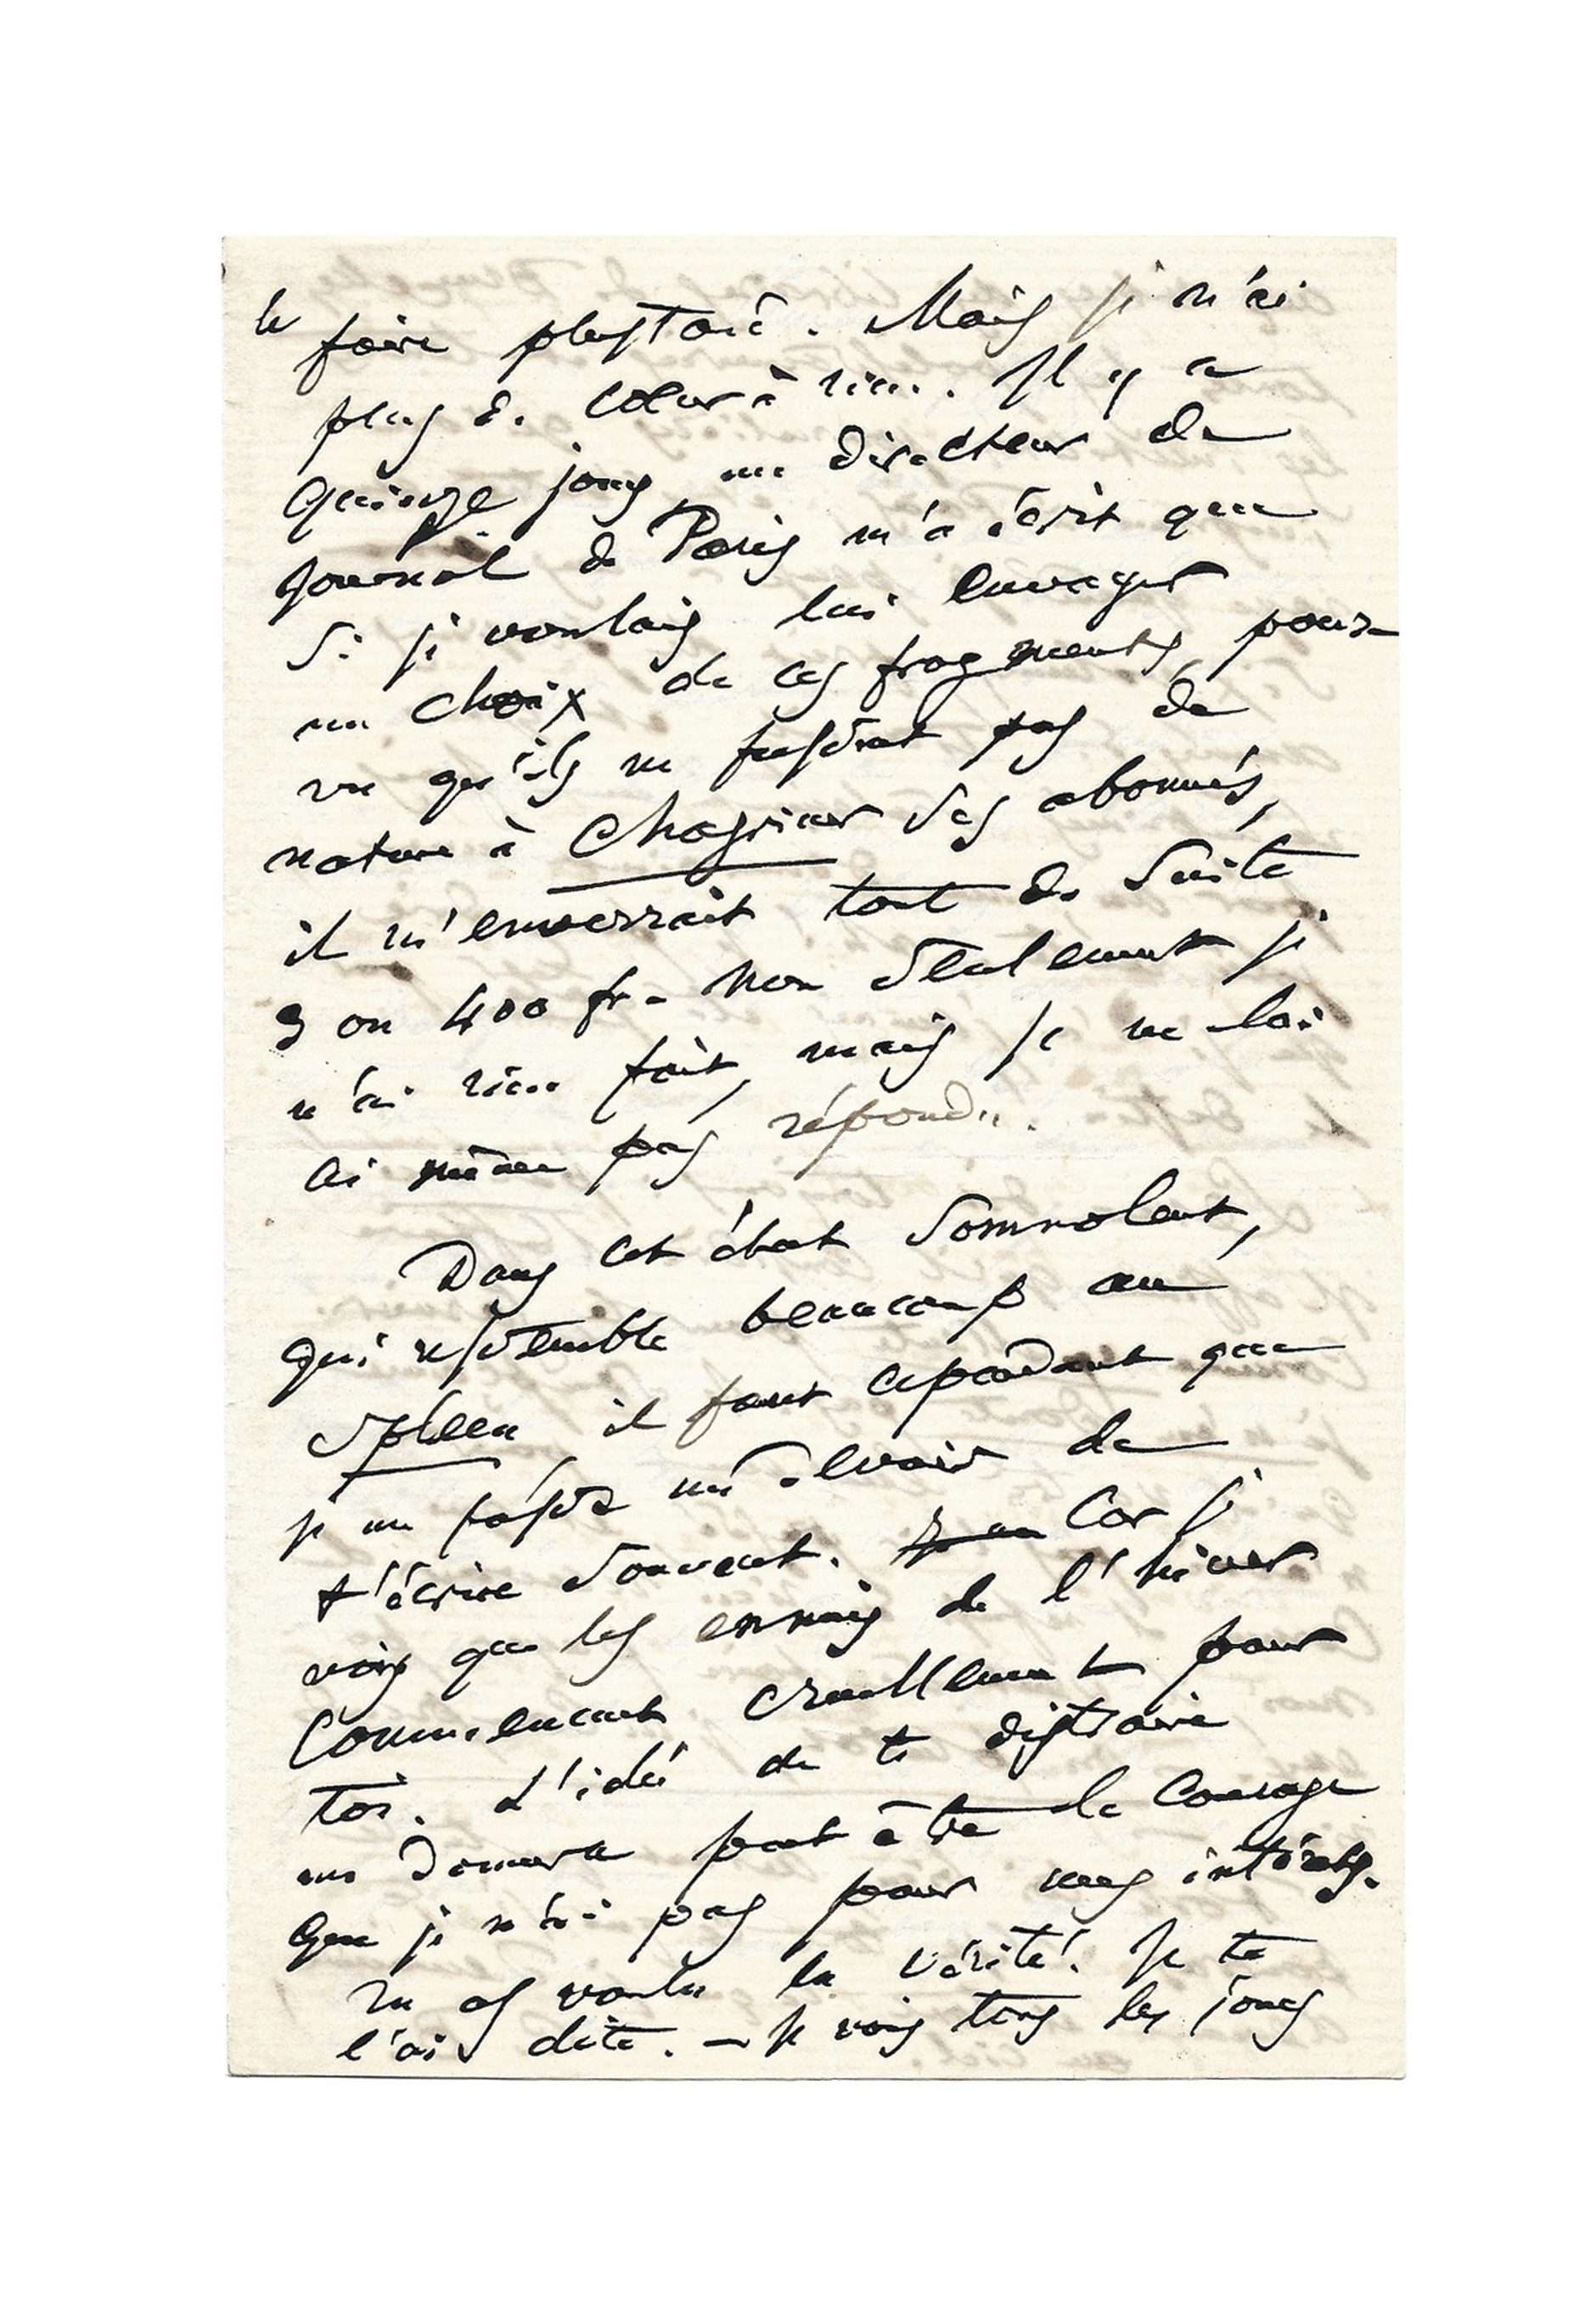 le faire plus tard. Mais je n'ai
plus de cœur à rien. Il y a
quinze jours, un directeur de
journal de Paris m'a écrit que
si je voulais lui envoyer
un choix de ces fragments, pour-
vu qu'ils ne fussent pas de
nature à chagriner ses abonnés,
il m'enverrait tout de suite
3 ou 400 fr. Non seulement je
n'ai rien fait, mais je ne lui
ai même pas répondu.
Dans cet état somnolent,
qui ressemble beaucoup au
spleen il faut cependant que
je me fasse un devoir de
t'écrire souvent. Car je
vois que les ennuis de l'hiver
commencent cruellement pour
toi. L'idée de te distraire
me donnera peut être le courage
que je n'ai pas pour mes intérêts.
Tu as voulu la vérité. Je te
l'ai dite. — Je vois tous les jours